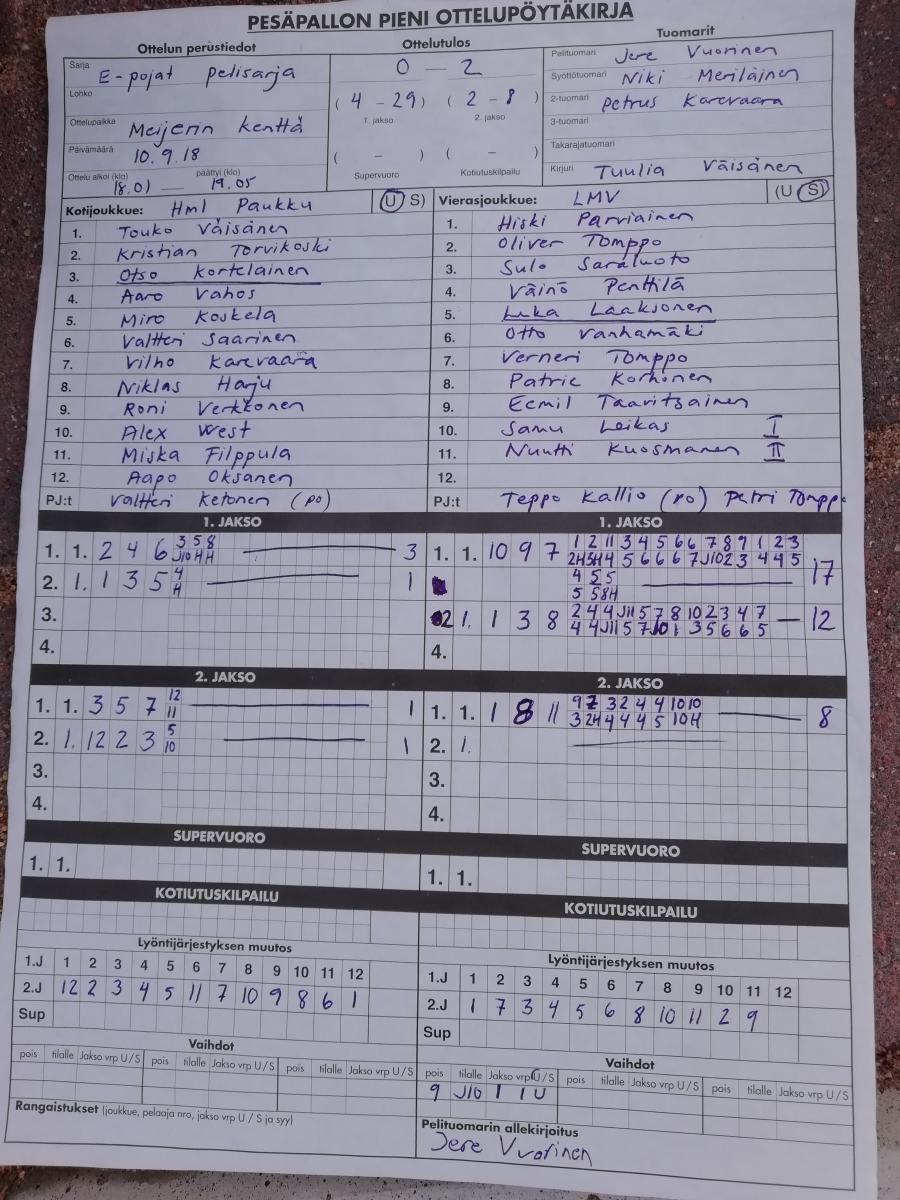 PESÄPALLON PIENI OTTELUPÖYTÄKIRJA
Ottelun perustiedot
Sarja E-pojat pelisarja
Lohko
Ottelupaikka Meijerin kenttä
Päivämäärä 10.9.18
Ottelu alkoi (klo) päättyi (klo)
18.01 — 19.05
Ottelutulos
0 — 2
(4 - 29) (2 - 8)
1. jakso 2. jakso
( - ) ( - )
Supervuoro Kotiutuskilpailu
Tuomarit
Pelituomari Jere Vuorinen
Syöttötuomari Niki Meriläinen
2-tuomari Petrus Karevaara
3-tuomari
Takarajatuomari
Kirjuri Tuulia Väisänen
Kotijoukkue: Hml Paukku (U S)
1. Touko Väisänen
2. Kristian Torvikoski
3. Otso Kortelainen
4. Aaro Vahos
5. Miro Koskela
6. Valtteri Saarinen
7. Vilho Karevaara
8. Niklas Harju
9. Roni Verkkonen
10. Alex West
11. Miska Filppula
12. Aapo Oksanen
PJ:t Valtteri Ketonen (po)
Vierasjoukkue: LMV (U S)
1. Hiski Parviainen
2. Oliver Tomppo
3. Sulo Saraluoto
4. Väinö Penttilä
5. Luka Laaksonen
6. Otto Vanhamäki
7. Verneri Tomppo
8. Patric Korhonen
9. Eemil Taaritsainen
10. Samu Leikas I
11. Nuutti Kuosmanen II
12.
PJ:t Teppo Kallio (po) Petri Tomppo
1. JAKSO
1. 1. 2 4 6 3 5 8 — 3
J10 H H
2. 1. 1 3 5 4 — 1
H
3.
4.
1. JAKSO
1. 1. 10 9 7 1 2 11 3 4 5 6 6 7 8 9 1 2 3
2H 3H 4 5 6 6 6 7 J10 2 3 4 4 5
4 5 5 — 17
5 5 8H
2 1. 1 3 8 2 4 4 J11 5 7 8 10 2 3 4 7 — 12
4 4 J11 5 7 10 1 3 5 6 6 5
4.
2. JAKSO
1. 1. 3 5 7 12 — 1
11
2. 1. 12 2 3 5 — 1
10
3.
4.
2. JAKSO
1. 1. 1 8 11 9 2 3 2 4 4 10 10 — 8
3 2H 4 4 4 5 10 H
2. 1. —
3.
4.
SUPERVUORO
1. 1.
SUPERVUORO
1. 1.
KOTIUTUSKILPAILU
KOTIUTUSKILPAILU
Lyöntijärjestyksen muutos
1.J 1 2 3 4 5 6 7 8 9 10 11 12
2.J 12 2 3 4 5 11 7 10 9 8 6 1
Sup
Lyöntijärjestyksen muutos
1.J 1 2 3 4 5 6 7 8 9 10 11 12
2.J 1 7 3 4 5 6 8 10 11 2 9
Sup
Vaihdot
pois tilalle Jakso vrp U/S pois tilalle Jakso vrp U/S pois tilalle Jakso vrp U/S
Vaihdot
pois tilalle Jakso vrp U/S pois tilalle Jakso vrp U/S pois tilalle Jakso vrp U/S
9 J10 1 1U
Rangaistukset (joukkue, pelaaja nro, jakso vrp U / S ja syy)
Pelituomarin allekirjoitus
Jere Vuorinen